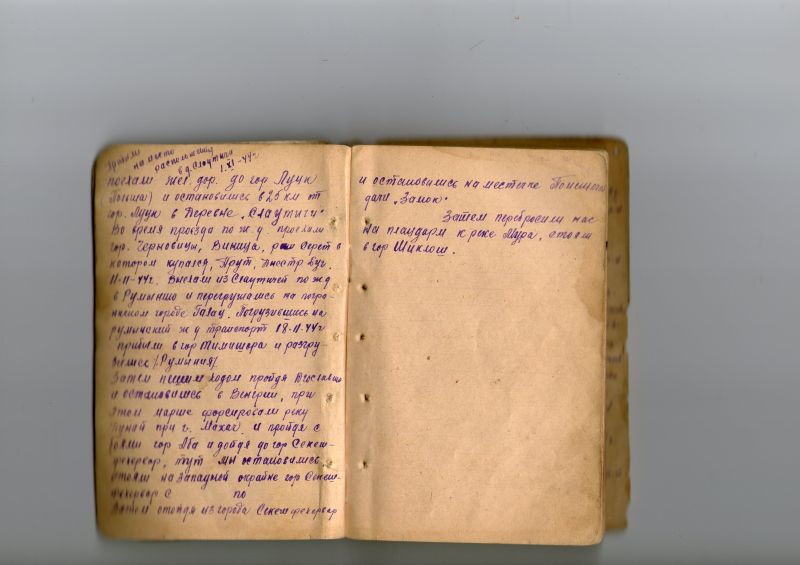 Прибыли
на место
расположения
в д. Слаутичи
1.XI-44г.
поехали жел. дор. до гор Луук
(Польша) и остановились в 25 км от
гор. Луук в деревне „Слаутичи"
Во время проезда по ж.д. проехали
гор. Черновицы, Виница, реки Серет в
котором купался, Прут, Днестр Буг.
11-11-44г. Выехали из Слаутичей по ж д
в Румынию и перегружались на погра-
ничном городе Галац. Погрузившись на
румынский ж д транспорт 18-11-44г
прибыли в гор Тимишора и разгру-
зились (Румыния)
Затем пешим ходом пройдя Югославию
и остановились в Венгрии, при
этом марше форсировали реку
Дунай при г. Махач и пройдя с
боями гор Аба и дойдя до гор Секеш-
фехервар, тут мы остановились.
стояли на Западной окрайне гор Секеш-
фехервар с по
Затем отойдя из города Секешфехервар
и остановились на местечке
дали „Замок"
Затем перебросили нас
на плацдарм к реке Мура, стояли
в гор Шиклош.